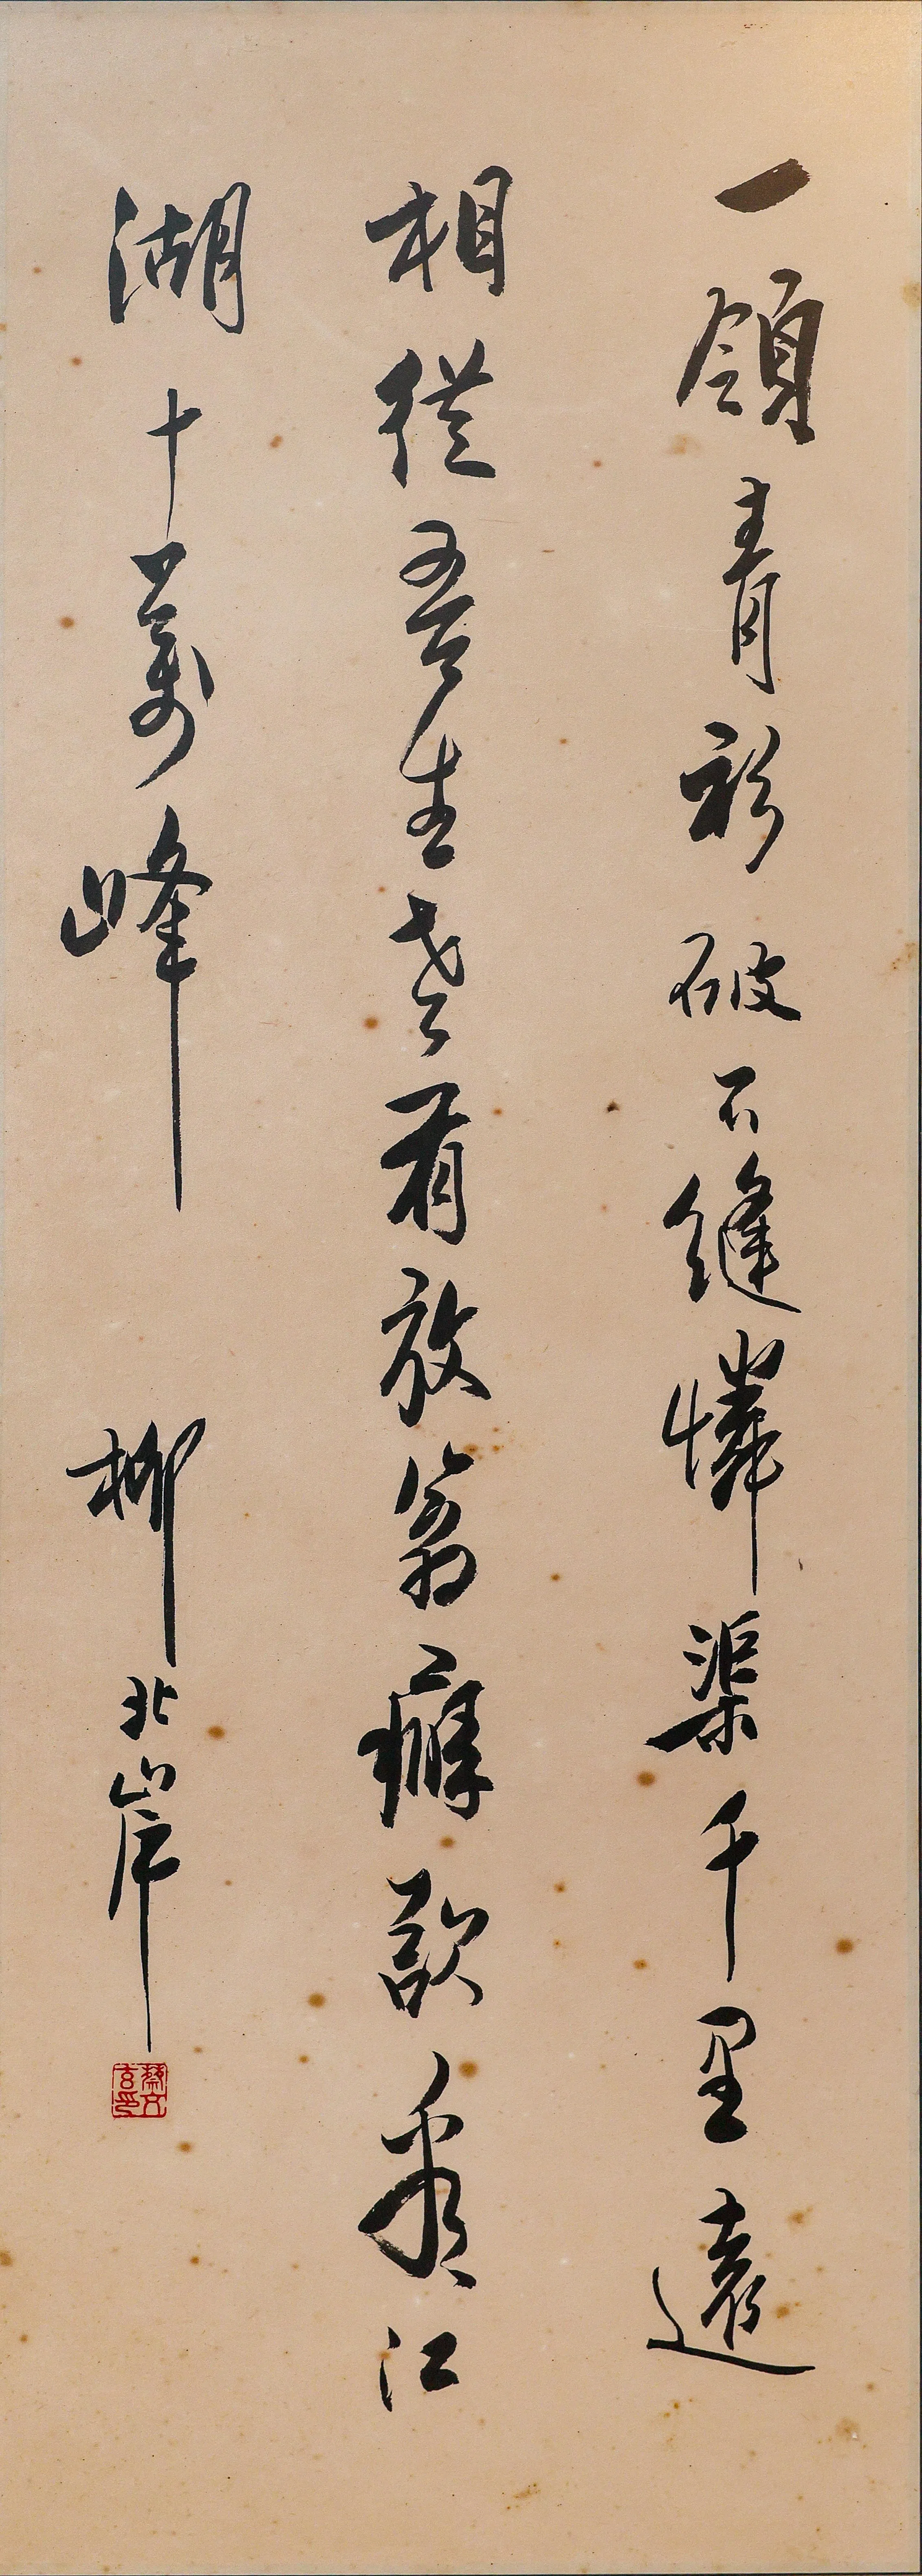 一領青衫破不縫憐渠千里遠
相從吾生老有放翁癖欲看江
湖十萬峰
柳北岸
蔡文玄印